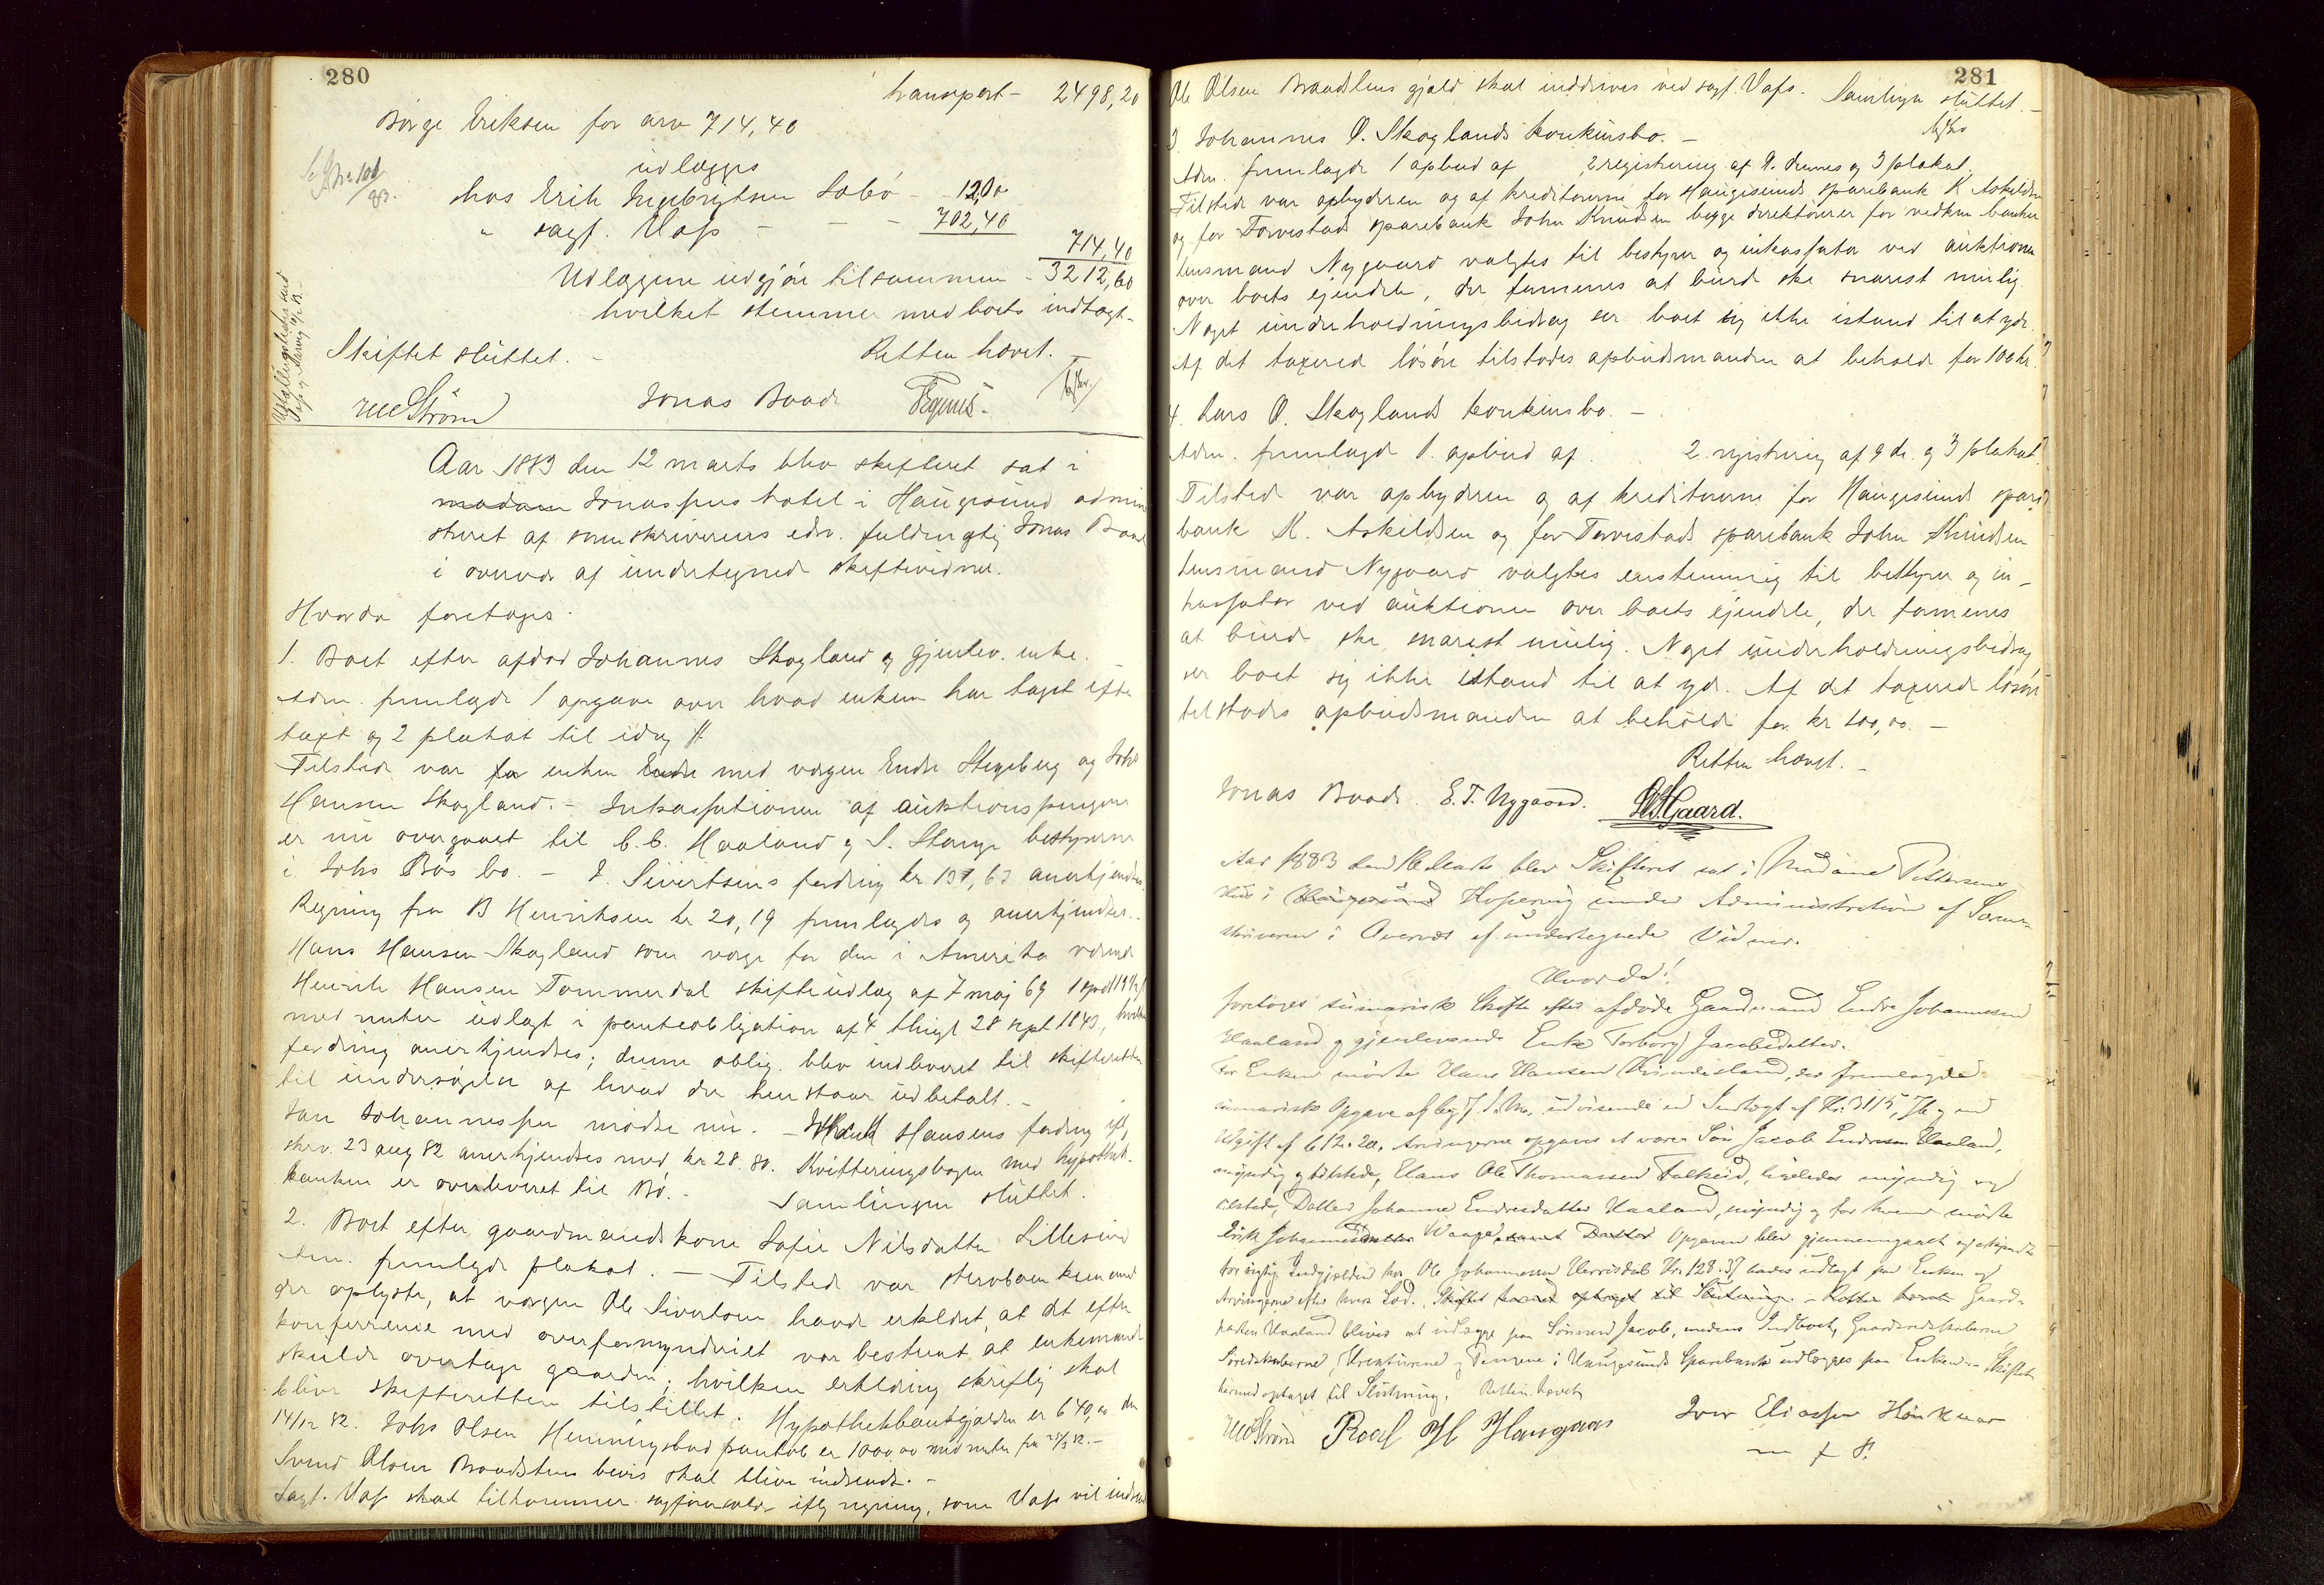 280
transport - 2498,20
Børge Eriksen for arv 714,40
udlægges
hos Erik Ingebrigtsen Sæbø - 12,00
" sagf. Vafs - - - 702,40
714,40
Udlæggene udgjør tilsammen - 3212,60
hvilket stemmer med boets indtægt. -
Skiftet sluttet. - Retten hævet. -
MStrøm Jonas Baade
Aar 1883 den 12 marts blev skifteret sat i
madam Jonassens hotel i Haugesund admini
streret af sorenskriverens edsv. fuldmægtig Jonas Baade
i overvær af undertegnede skiftevidner.
Hvorda foretoges.
1. Boet efter afdød Johannes Skogland og gjenlev. enke.
Adm. fremlagde 1 opgave over hvad enken har taget efter
taxt og 2 plakat til idag #
Tilstede var for enken Endre med værgen Endre Stegeberg og Johs
Hansen Skogland. - Inkassationen af auktionspengene
er nu overgaaet til C. C. Haaland og S. Stange bestyrerne
i Johs Bøs bo. - J. Sivertsens fordring kr 137,63 anerkjendtes.
Regning fra B Henriksen kr 20,19 fremlagdes og anerkjendtes. -
Hans Hansen Skogland som værge for den i Amerika værende
Henrik Hansen Tømmerdal skifteudlæg af 7 maj 69
med renter udlagt i panteobligation af 4 thingl 28 sept 1843, hvilken
fordring anerkjendtes; denne oblig. blev indleveret til skifteretten
til undersøgelse af hvad der henstaar ubetalt. -
Jan Johannessen mødte nu. - Hansens fordring ifl.
skrv. 23 aug 82 anerkjendtes med kr 28.80. Kvitteringsbogen med hypothek-
banken er overleveret til Bø. - Samlingen sluttet.
2. Boet efter gaardmandskone Sofie Nilsdatter Lillesund
Adm. fremlagde plakat. - Tilstede var stervboenkemand
der oplyste, at værgen Ole Sivertsen havde erklæret, at det efter
konferrence med overformynderiet var bestemt at enkemanden
skulde overtage gaarden; hvilken erklæring skriftlig skal
blive skifteretten tilstillet. Hypothekbankgjælden er 640,00 den
14/12 82. Johs Olsen Henningsbud pantob er 1000,00 med renter fra
Svend Olsen Braadstens bevis skal blive indsendt. -
Sagf. Vafs skal tilkomme sagførersalær ifl. regning, som Vafs vil indsende
281
Ole Olsen Braadlens gjæld skal inddrives ved sagf. Vafs. Samlingen sluttet. -
3. Johannes O. Skoglands konkursbo. -
Adm. fremlagde 1 opbud af 2 registrering af 9. dennes og 3 plakat.
Tilstede var opbyderen og af kreditorerne for Haugesunds sparebank K Askildsen
og for Torvestads sparebank John Knudsen begge direktører for vedkom. banker
Lensmand Nygaard valgtes til bestyrer og inkassator ved auktionen
over boets ejendele, der formenes at burde ske snarest mulig.
Noget underholdningsbidrag ser boet sig ikke istand til at yde.
Af det taxerede løsøre tilstodes opbudsmanden at beholde for 100 kr.
4. Lars O. Skoglands konkursbo. -
Adm. fremlagde 1. opbud af 2. registrering af 9 ds. og 3 plakat.
Tilstede var opbyderen og af kreditorerne for Haugesunds spare
bank K. Askildsen og for Torvestads sparebank John Knudsen
Lensmand Nygaard valgtes enstemmig til bestyrer og in-
kassator ved auktionen over boets ejendele, der formenes
at burde ske snarest mulig. Noget underholdningsbidrag
ser boet sig ikke istand til at yde. Af det taxerede løsøre
tilstodes opbudsmanden at beholde for kr 100,00. -
Retten hævet. -
Jonas Baade. E. T. Nygaard. Gaard.
Aar 1883 den Marts blev Skifteret sat i Madame Pettersens
Hus i Haugesund Kopervig under Administration af Soren-
skriveren i Overvær af undertegnede Vidner.
Hvorda!
foretoges sumarisk Skifte efter afdøde Gaardmand Endre Johannesen
Haaland og gjenlevende Enke Torborg Jacobsdatter.
For Enken mødte Hans Hansen, der fremlagde
sumarisk Opgave af udvisende en Indtægt af Kr. 3115, og en
Udgift af 612.20. Arvingerne opgaves at være Søn Jacob Endresen Haaland,
myndig og tilstede, Hans Ole Thomassen Falkeid, ligeledes myndig og
tilstede, Datter Johanne Endresdatter Haaland, myndig og for hvem mødte
Erik Johannessen Waage, samt Datter Opgaven blev gjennemgaaet og erkjendt
for rigtig. Indgjælden hos Ole Johannessen Kr. 128.37 bades udlagt paa Enken og
Arvingerne efter hvers Lod. Skiftet herved optaget til Slutning. - Retten hævet Gaard-
parten Haaland bliver at udlægge paa Sønnen Jacob, medens Indboet, Gaardsredskaberne
Kreaturene og Pengene i Haugesunds Sparebank udlægges paa Enken. - Skiftet
hermed optaget til Slutning. Retten hævet
MStrøm Iver Eliassen
m f P.